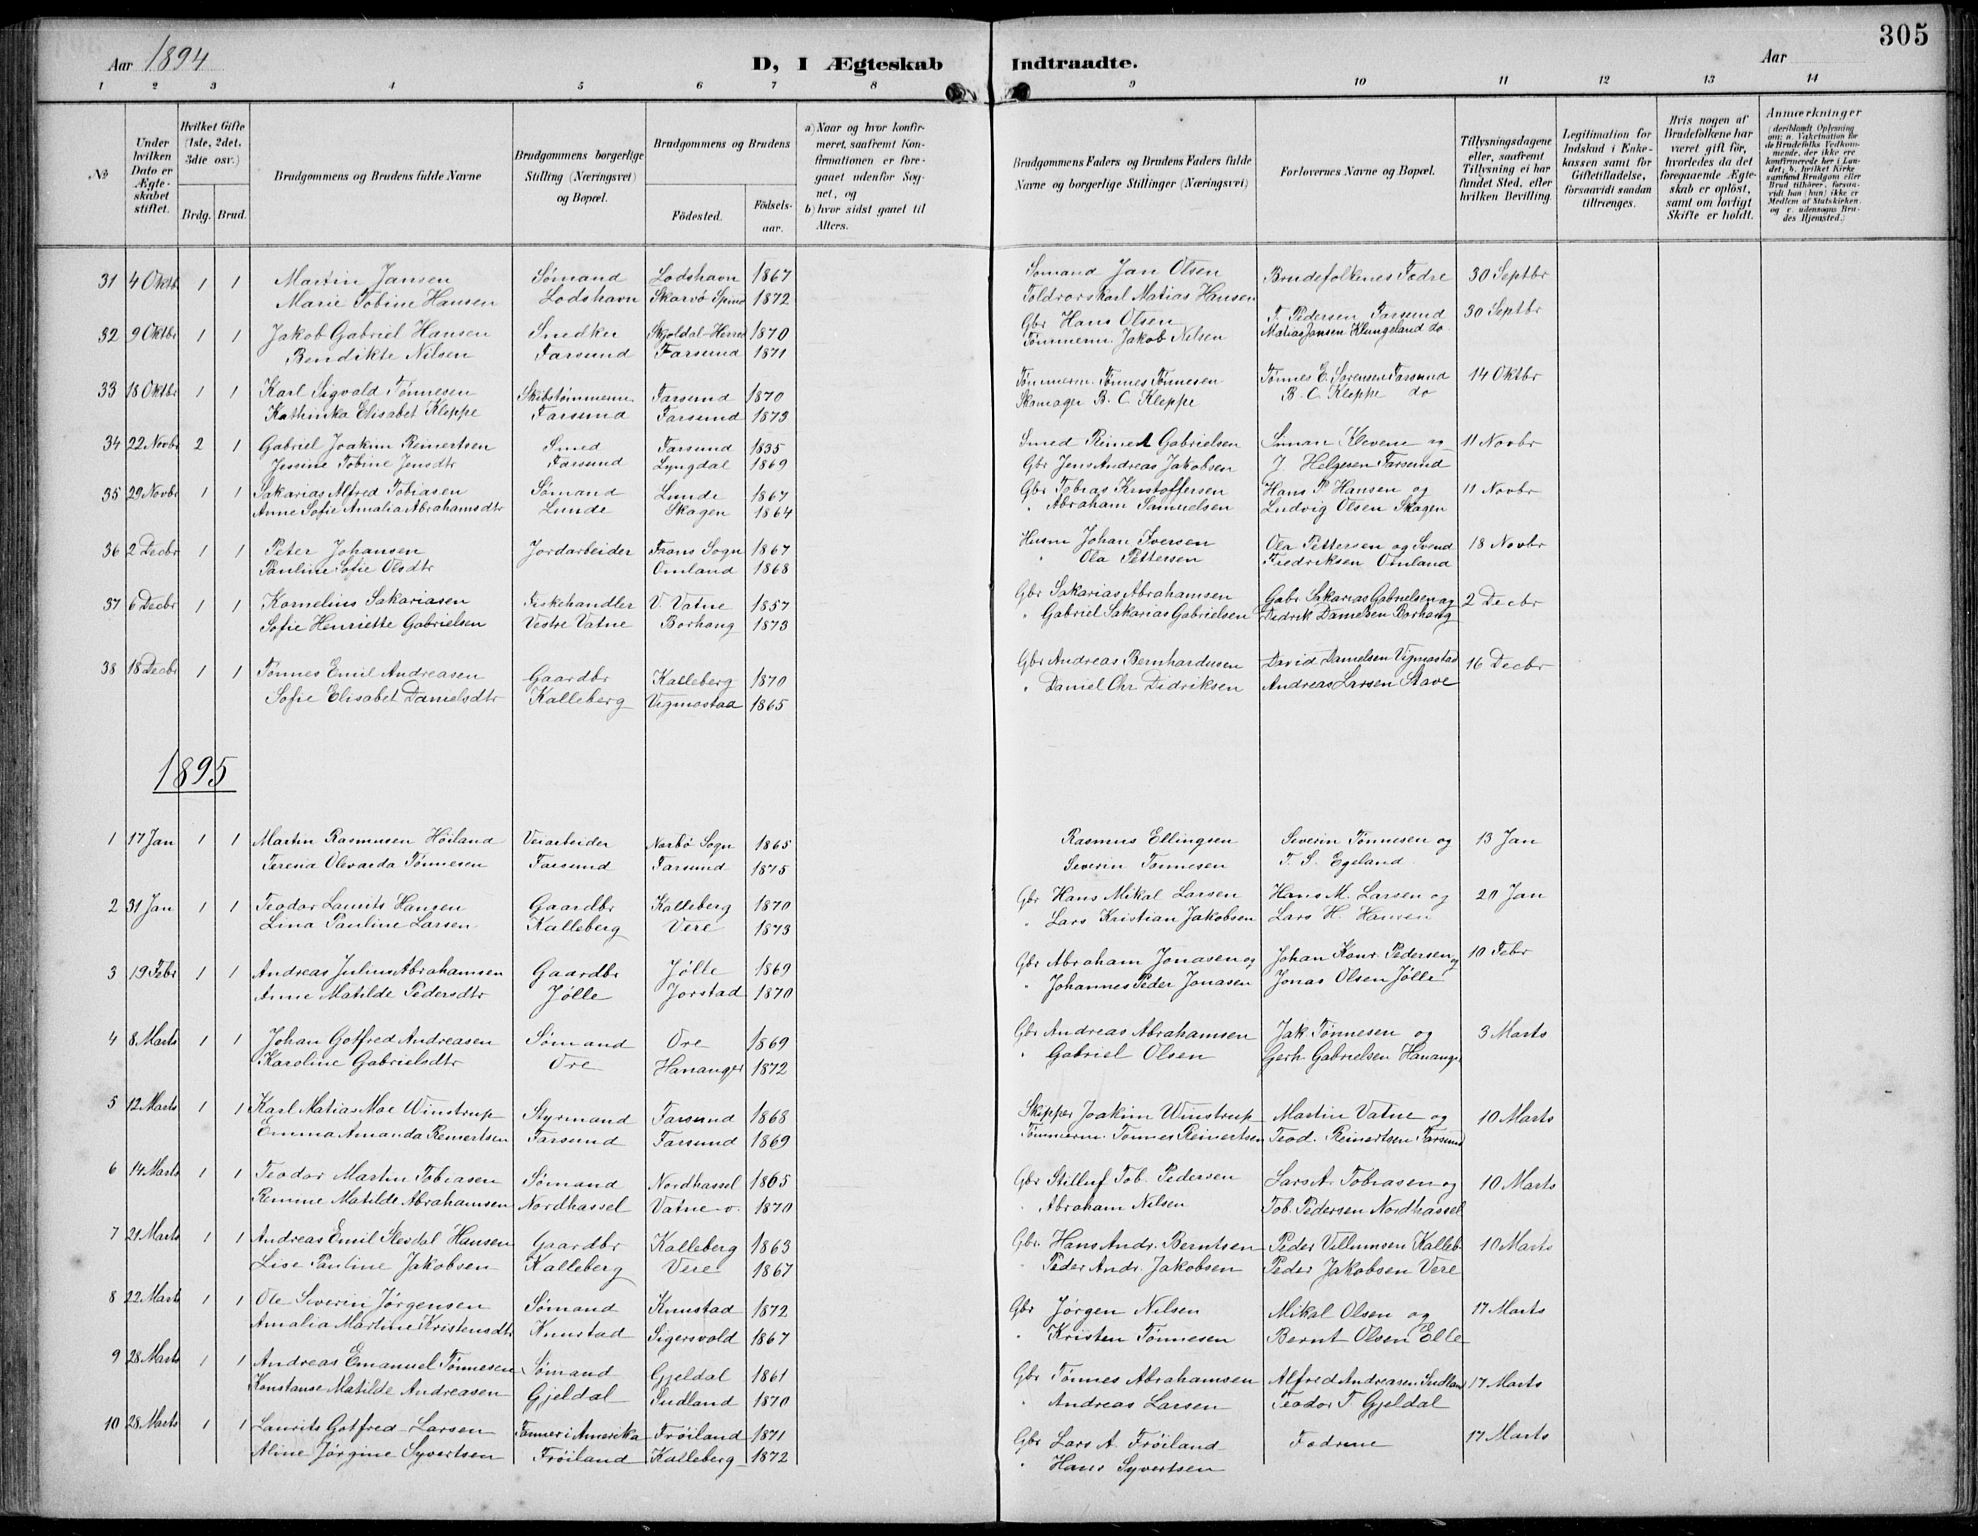 305
Aar 1894
D, I Ægteskab Indtraadte.
Aar
1 2 3 4 5 6 7 8 9 10 11 12 13 14
№
Under hvilken Dato er Ægteskabet stiftet.
Hvilket Gifte (1ste, 2det, 3die osv.)
Brdg. Brud.
Brudgommens og Brudens fulde Navne
Brudgommens borgerlige Stilling (Næringsvei) og Bopæl.
Brudgommens og Brudens
Fødested. Fødselsaar.
a) Naar og hvor konfirmeret, saafremt Konfirmationen er foregaaet udenfor Sognet, og
b) hvor sidst gaaet til Alters.
Brudgommens Faders og Brudens Faders fulde Navne og borgerlige Stillinger (Næringsvei)
Forlovernes Navne og Bopæl.
Tillysningsdagene eller, saafremt Tillysning ei har fundet Sted, efter hvilken Bevilling.
Legitimation for Indskud i Enkekassen samt for Giftetilladelse, forsaavidt saadan tiltrænges.
Hvis nogen af Brudefolkene har været gift før, hvorledes da det foregaaende Ægteskab er opløst, samt om lovligt Skifte er holdt.
Anmærkninger
31 4 Oktb 1 1 Martin Jansen Sømand Lodshavn 1867 Sømand Jan Olsen Brudefolkenes Fædre 30 Septbr
Marie Tobine Hansen Lodshavn Skarvø Spind 1872 Toldrorskarl Matias Hansen
32 9 Oktbr 1 1 Jakob Gabriel Hansen Snedker Skjoldal-Herred 1870 Gbr Hans Olsen T. Pedersen Farsund 30 Septbr
Bendikte Nilsen Farsund Farsund 1871 Tømmerm. Jakob Nilsen Matias Jansen Klungeland do
33 18 Oktbr 1 1 Karl Sigvald Tønnesen Skibstømmerm. Farsund 1870 Tømmerm. Tønnes Tønnesen Tønnes E. Sørensen Farsund 14 Oktbr
Kathinka Elisabet Kleppe Farsund Farsund 1873 Skomager B. C. Kleppe B. C. Kleppe do
34 22 Novbr 2 1 Gabriel Joakim Reinertsen Smed Farsund 1835 Smed Reinert Gabrielsen Simon Klevene og 11 Novbr
Jessine Tobine Jensdtr Farsund Lyngdal 1869 Gbr Jens Andreas Jakobsen J. Helgesen Farsund
35 29 Novbr 1 1 Sakarias Alfred Tobiasen Sømand Lunde 1867 Gbr Tobias Kristoffersen Hans P Hansen og 11 Novbr
Anne Sofie Amalia Abrahamsdtr Lunde Skagen 1864 " Abraham Samuelsen Ludvig Olsen Skagen
36 2 Decbr 1 1 Peter Johansen Jordarbeider Fams Sogn 1867 Husm Johan Iversen Ola Pettersen og Svend 18 Novbr
Pauline Sofie Olsdtr Omland 1868 " Ola Pettersen Fredriksen Omland
37 6 Decbr 1 1 Kornelius Sakariasen Fiskehandler V. Vatne 1857 Gbr Sakarias Abrahamsen Gabr Sakarias Gabrielsen og 2 Decbr
Sofie Henriette Gabrielsen Vestre Vatne Borhaug 1873 " Gabriel Sakarias Gabrielsen Didrik Danielsen Borhaug
38 18 Decbr 1 1 Tønnes Emil Andreasen Gaardbr Kalleberg 1870 Gbr Andreas Bernhardusen David Danielsen Vigmostad 16 Decbr
Sofie Elisabet Danielsdtr Kalleberg Vigmostad 1865 " Daniel Chr Didriksen Andreas Larsen Stave
1895
1 17 Jan 1 1 Martin Rasmusen Høiland Veiarbeider Nærbø Sogn 1865 Rasmus Ellingsen Severin Tønnesen og 13 Jan
Teresia Olevarda Tønnesen Farsund Farsund 1875 Severin Tønnesen T. S. Egeland
2 31 Jan 1 1 Teodor Laurits Hansen Gaardbr Kalleberg 1870 Gbr Hans Mikal Larsen Hans M. Larsen og 20 Jan
Lina Pauline Larsen Kalleberg Vere 1873 " Lars Kristian Jakobsen Lars H. Hansen
3 19 Febr 1 1 Andreas Julius Abrahamsen Gaardbr Jølle 1869 Gbr Abraham Jonasen og Johan Konr Pedersen og 10 Febr
Anne Matilde Pedersdtr Jølle Jorstad 1870 " Johannes Peder Jonasen Jonas Olsen Jølle
4 8 Marts 1 1 Johan Gotfred Andreasen Sømand Ore 1869 Gbr Andreas Abrahamsen Jak Tønnesen og 3 Marts
Karoline Gabrielsdtr Ore Hananger 1872 " Gabriel Olsen Gerh. Gabrielsen Hananger
5 12 Marts 1 1 Karl Matias Moe Winstrup Styrmand Farsund 1868 Skipper Joakim Winstrup Martin Vatne og 10 Marts
Emma Amanda Reinertsen Farsund Farsund 1869 Tømmerm. Tønnes Reinertsen Teod. Reinertsen Farsund
6 14 Marts 1 1 Teodor Martin Tobiasen Sømand Nordhassel 1865 Gbr Stilluf Tob. Pedersen Lars A. Tobiasen og 10 Marts
Remine Matilde Abrahamsen Nordhassel Vatne v. 1870 " Abraham Nilsen Tob. Pedersen Nordhassel
7 21 Marts 1 1 Andreas Emil Slevdal Hansen Gaardbr Kalleberg 1863 Gbr. Hans Andr. Berntsen Peder Villumsen Kalleb. 10 Marts
Lise Pauline Jakobsen Kalleberg Vere 1867 " Peder Andr. Jakobsen Peder Jakobsen Vere
8 22 Marts 1 1 Ole Severin Jørgensen Sømand Knustad 1872 Gbr Jørgen Nilsen Mikal Olsen og 17 Marts
Amalia Martine Kristensdtr Knustad Sigersvold 1867 " Kristen Tønnesen Bernt Olsen Elle
9 28 Marts 1 1 Andreas Emanuel Tønnesen Sømand Gjeldal 1861 Gbr Tønnes Abrahamsen Alfred Andreasen Sudland 17 Marts
Konstanse Matilde Andreasen Gjeldal Sudland 1870 " Andreas Larsen Teodor T Gjeldal
10 28 Marts 1 1 Laurits Gotfred Larsen Tømmer i Amerika Frøiland 1871 Gbr Lars A. Frøiland Fædrene 17 Marts
Aline Jørgine Syvertsen Frøiland Kalleberg 1872 " Hans Syvertsen